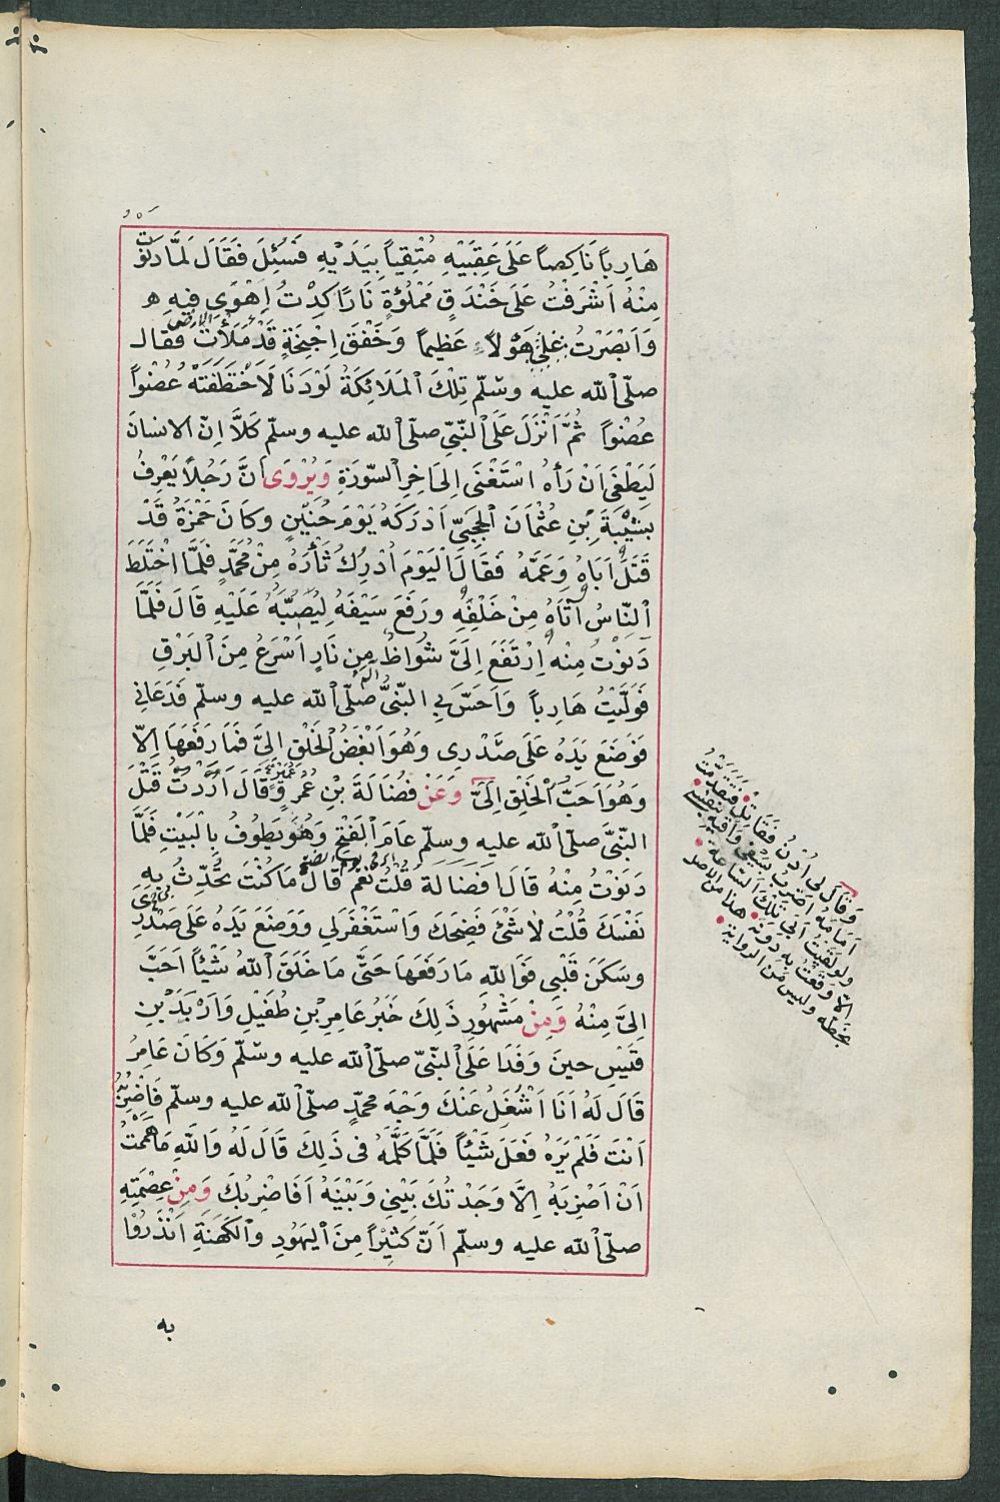 هَارِباً نَاكِصاً عَلَى عَقِبَيْهِ مُتَّقِياً بِيَدَيْهِ فَسُئِلَ فَقَالَ لَمَّا دَنَوْتُ
مِنْهُ اَشْرَفْتُ عَلَى خَنْدَقٍ مَمْلُوْءٍ نَارًا كِدْتُ اَهْوَى فِيهِ
وَاَبْصَرْتُ هَوْلاً عَظِيماً وَخَفْقَ اَجْنِحَةٍ قَدْ مَلَأَتِ الارض فَقَالَ
صلّى الله عليه وسلّم تِلْكَ الْمَلَائِكَةُ لَوْدَنَا لَاَخْتَطَفَتْهُ عُضْواً
عُضْواً ثُمَّ اَنْزَلَ عَلَى النَّبِّى صلّى الله عليه وسلّم كَلَّا اِنَّ الانسانَ
لَيَطْغَى اَنْ رَأهُ اسْتَغْنَى اِلَى اٰخِرِ السّورَةِ وَيُرْوَى اَنَّ رَجُلاً يَعْرِفُ
بِشَيْبَةَ بْنِ عُثْمَانَ الْحَجَبِىّ اَدْرَكَهُ يَوْمَ حُنَيْنٍ وكَانَ حَمْزَةُ قَدْ
قَتَلَ اَبَاهُ وَعَمَّهُ فَقَالَ الْيَوْمَ اُدْرِكُ ثَأْرَهُ مِنْ مُحَمَّدٍ فَلَمَّا اخْتَلَطَ
النّاسُ اَتَاهُ مِنْ خَلْفِهِ ورَفَعَ سَيْفَهُ لِيَصُبَّهُ عَلَيْهِ قَالَ فَلَمَّا
دَنَوْتُ مِنْهُ اِرْتَفَعَ اِلَىَّ شُوَاظٌ مِن نَارٍ اَسْرَعُ مِنَ الْبَرْقِ
فَوَلَّيْتُ هَارِباً وَاَحَسَّ بِى النَّبِّىُّ صلّى الله عليه وسلّم فَدَعَانِى
فَوَضَعَ يَدَهُ عَلَى صَدْرِى وَهُوَ اَبْغَضُ الْخَلْقِ اِلىَّ فَمَا رَفَعَهَا اِلّا
وَهُوَ اَحَبُّ الْخَلْقِ اِلَىَّ وَعَنْ فُضَالَةَ بْنِ عُمَرٍ وَقَالَ اَرَدْتُ قَتْلَ
النّبَّى صلّى الله عليه وسلّم عَامَ الْفَتْحِ وَهُوَ يَطُوفُ بِالْبَيْتِ فَلَمَّا
دَنَوْتُ مِنْهُ قَالَ اَفَضَالَةَ قُلْتُ نَعَمْ قَالَ مَا كُنْتَ تُحَدِّثُ بِهِ
نَفْسَكَ قُلْتُ لاٰ شَئَ فَضِحَكَ وَاسْتَغْفَرَلِى وَوَضَعَ يَدَهُ عَلَى صَدْرِى
وسَكَنَ قَلْبِى فَوَاللهِ مَا رَفَعَهَا حَتَّى مَا خَلَقَ اللهُ شَيْئاً اَحَبَّ
اِلىَّ مِنْهُ وَمِنْ مَشْهُورِ ذَلِكَ خَبَرُ عَامِرِ بْنِ طُفَيْلٍ وَاَرْبَدَ بْنِ
قَيْسٍ حينَ وَفَدَا عَلَى النّبّىِ صلّى الله عليه وسلّم وَكَانَ عَامِرُ
قَالَ لَهُ اَنَا اَشْغَلُ عَنْكَ وَجْهَ محمّدٍ صلّى الله عليه وسلّم فَاضْرِبْهُ
اَنْتَ فَلَمْ يَرَهُ فَعَلَ شَيْئاً فَلَمَّا كَلَّمَهُ فى ذَلِكَ قَالَ لَهُ وَاللهِ مَا هَمَمْتُ
اَنْ اَضْرِبَهُ اِلَّا وَجَدْتُكَ بَيْنِى وَبَيْنَهُ اَفَاضْرِبُكَ وَمِنْ عِصْمَتِهِ
صلّى الله عليه وسلّم اَنَّ كَثِيْراً مِنَ الْيَهُودِ وَالْكَهَنَةِ اَنْذَرُوْا
به
وَقَالَ لِى اُدْنُ فَقَاتِلْ فَتَقَدَّمْتُ
اَمَامَهُ اَضْرِبُ بِسَيْفِى وَاَقِيهِ بِنَفْسِى
ولو لَقِيْتُ اَبِى تِلْكَ السّاعَةَ
الّا وقَعْتُ بِهِ دونَهُ هذا من الاصل
بخطّه وليس من الرواية